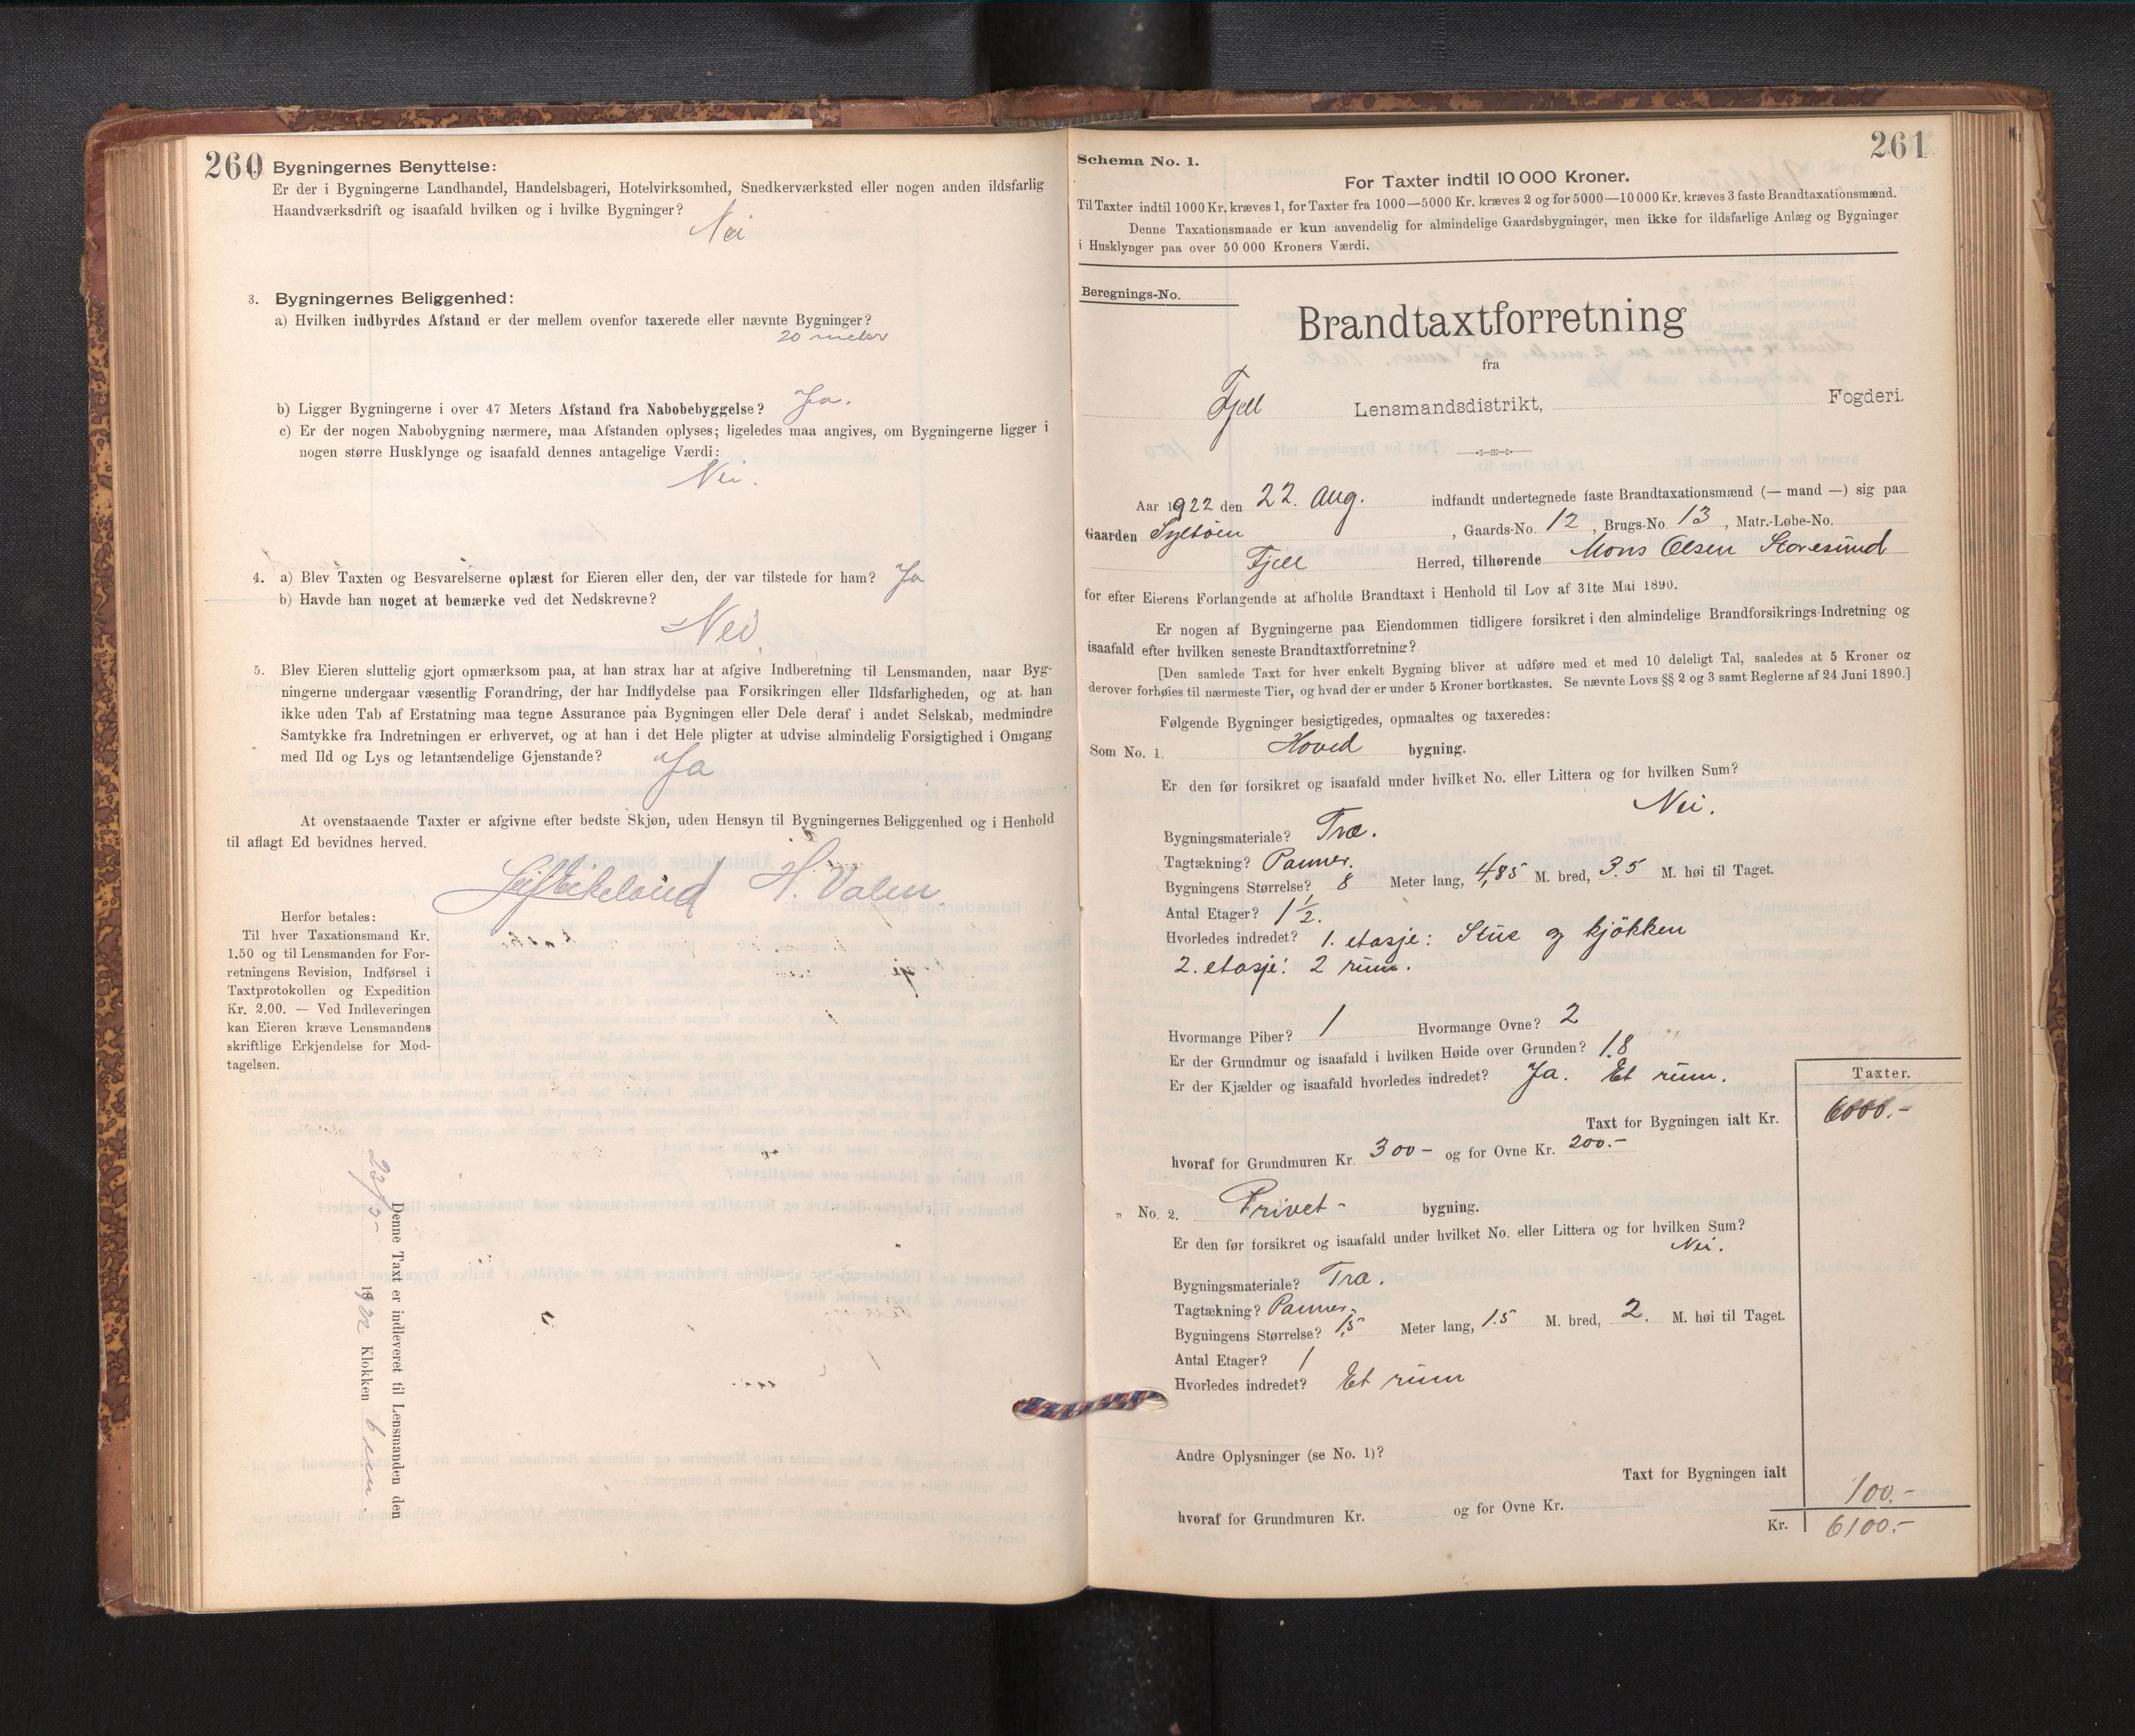 260
Bygningernes Benyttelse:
Er der i Bygningerne Landhandel, Handelsbageri, Hotelvirksomhed, Snedkerværksted eller nogen anden ildsfarlig
Haandværksdrift og isaafald hvilken og i hvilke Bygninger?
Nei
3. Bygningernes Beliggenhed:
a) Hvilken indbyrdes Afstand er der mellem ovenfor taxerede eller nævnte Bygninger?
20 meter
b) Ligger Bygningerne i over 47 Meters Afstand fra Nabobebyggelse? Ja.
c) Er der nogen Nabobygning nærmere, maa Afstanden oplyses; ligeledes maa angives, om Bygningerne ligger i
nogen større Husklynge og isaafald dennes antagelige Værdi:
Nei.
4. a) Blev Taxten og Besvarelserne oplæst for Eieren eller den, der var tilstede for ham? Ja
b) Havde han noget at bemærke ved det Nedskrevne?
Nei
5. Blev Eieren sluttelig gjort opmærksom paa, at han strax har at afgive Indberetning til Lensmanden, naar Byg-
ningerne undergaar væsentlig Forandring, der har Indflydelse paa Forsikringen eller Ildsfarligheden, og at han
ikke uden Tab af Erstatning maa tegne Assurance paa Bygningen eller Dele deraf i andet Selskab, medmindre
Samtykke fra Indretningen er erhvervet, og at han i det Hele pligter at udvise almindelig Forsigtighed i Omgang
med Ild og Lys og letantændelige Gjenstande? Ja
At ovenstaaende Taxter er afgivne efter bedste Skjøn, uden Hensyn til Bygningernes Beliggenhed og i Henhold
til aflagt Ed bevidnes herved.
H. Valen
Herfor betales:
Til hver Taxationsmand Kr.
1.50 og til Lensmanden for For-
retningens Revision, Indførsel i
Taxtprotokollen og Expedition
Kr. 2.00. — Ved Indleveringen
kan Eieren kræve Lensmandens
skriftlige Erkjendelse for Mod-
tagelsen.
Denne Taxt er indleveret til Lensmanden den
1922 Klokken 6 em.
261
Schema No. 1.
For Taxter indtil 10 000 Kroner.
Til Taxter indtil 1000 Kr. kræves 1, for Taxter fra 1000—5000 Kr. kræves 2 og for 5000—10 000 Kr. kræves 3 faste Brandtaxationsmænd.
Denne Taxationsmaade er kun anvendelig for almindelige Gaardsbygninger, men ikke for ildsfarlige Anlæg og Bygninger
i Husklynger paa over 50 000 Kroners Værdi.
Beregnings-No.
Brandtaxtforretning
fra
Fjell Lensmandsdistrikt, Fogderi.
Aar 1922 den 22. Aug. indfandt undertegnede faste Brandtaxationsmænd (— mand —) sig paa
Gaarden Syltöen, Gaards-No. 12, Brugs-No. 13, Matr.-Løbe-No.
Fjell Herred, tilhørende Mons Olsen Storesund
for efter Eierens Forlangende at afholde Brandtaxt i Henhold til Lov af 31te Mai 1890.
Er nogen af Bygningerne paa Eiendommen tidligere forsikret i den almindelige Brandforsikrings-Indretning og
isaafald efter hvilken seneste Brandtaxtforretning?
[Den samlede Taxt for hver enkelt Bygning bliver at udføre med et med 10 deleligt Tal, saaledes at 5 Kroner og
derover forhøies til nærmeste Tier, og hvad der er under 5 Kroner bortkastes. Se nævnte Lovs §§ 2 og 3 samt Reglerne af 24 Juni 1890.]
Følgende Bygninger besigtigedes, opmaaltes og taxeredes:
Som No. 1. Hoved bygning.
Er den før forsikret og isaafald under hvilket No. eller Littera og for hvilken Sum?
Nei.
Bygningsmateriale? Træ.
Tagtækning? Panner.
Bygningens Størrelse? 8 Meter lang, 4,85 M. bred, 3.5 M. høi til Taget.
Antal Etager? 1 1/2.
Hvorledes indredet? 1. etasje: Stue og kjökken
2. etasje: 2 rum.
Hvormange Piber? 1 Hvormange Ovne? 2
Er der Grundmur og isaafald i hvilken Høide over Grunden? 1.8
Er der Kjælder og isaafald hvorledes indredet? Ja. Et rum.
Taxter.
Taxt for Bygningen ialt Kr. 6000.-
hvoraf for Grundmuren Kr. 300- og for Ovne Kr. 200.-
„ No. 2. Privet- bygning.
Er den før forsikret og isaafald under hvilket No. eller Littera og for hvilken Sum?
Nei.
Bygningsmateriale? Træ.
Tagtækning? Panner.
Bygningens Størrelse? 1,5 Meter lang, 1.5 M. bred, 2. M. høi til Taget.
Antal Etager? 1
Hvorledes indredet? Et rum
Andre Oplysninger (se No. 1)?
Taxt for Bygningen ialt 100.-
hvoraf for Grundmuren Kr. og for Ovne Kr.
Kr. 6100.-